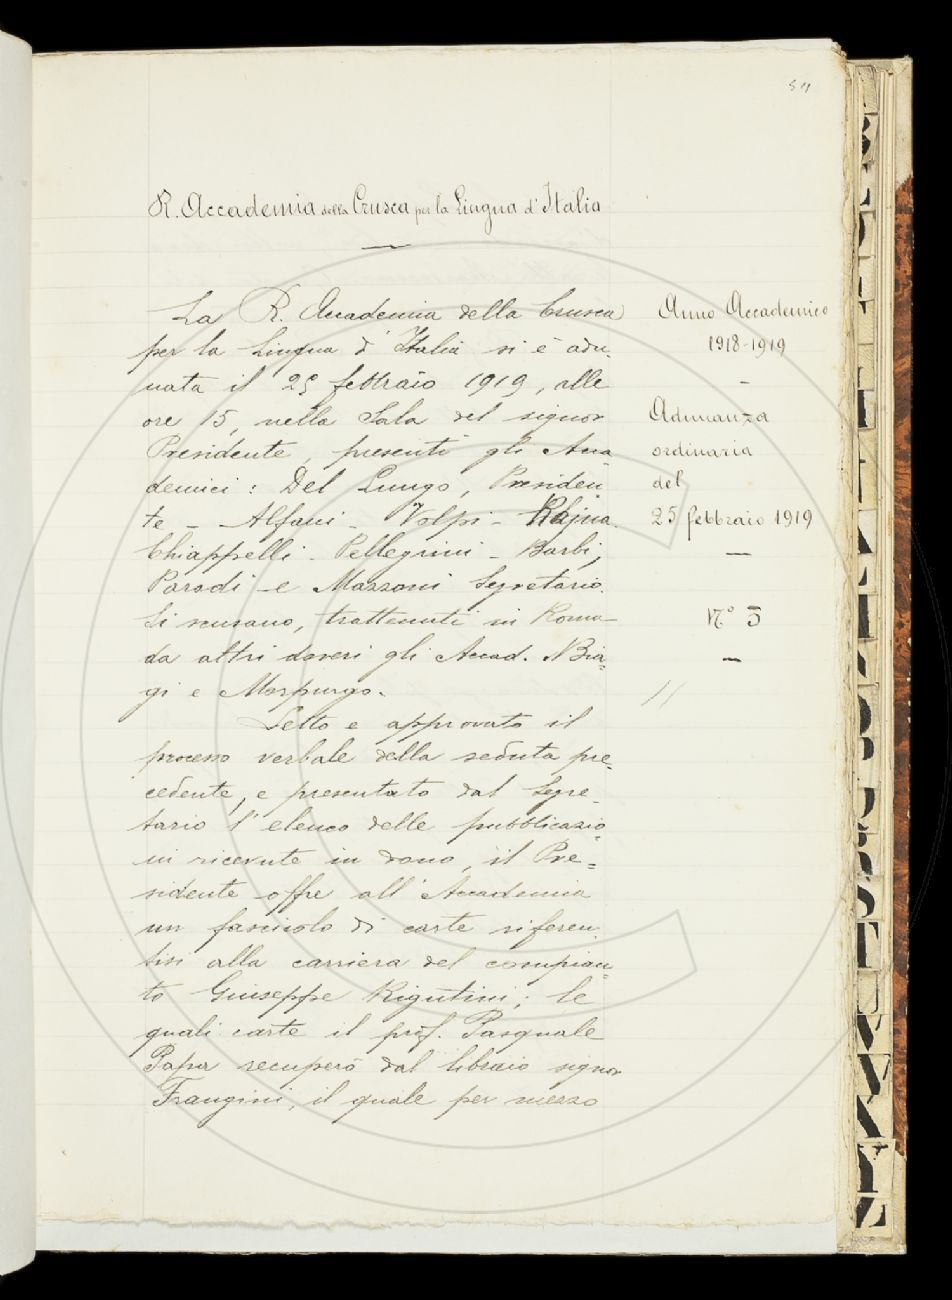 R. Accademia della Crusca per la Lingua d'Italia
La R. Accademia della Crusca
per la Lingua d'Italia si è adu-
nata il 25 febbraio 1919, alle
ore 15, nella Sala del signor
Presidente, presenti gli Acca
demici: Del Lungo, Presiden
te - Alfani - Volpi - Rajna
Chiappelli - Pellegrini - Barbi,
Parodi - e Mazzoni Segretario.
Si scusano, trattenuti in Roma
da altri doveri gli Accad. Bia-
gi e Morpurgo.
Letto e approvato il
processo verbale della seduta pre-
cedente, e presentato dal Segre-
tario l'elenco delle pubblicazio
ni ricevute in dono, il Pre=
sidente offre all'Accademia
un fascicolo di carte riferen-
tisi alla carriera del compian-
to Giuseppe Rigutini; le
quali carte il prof. Pasquale
Papa recuperò dal libraio signor
Frangini, il quale per mezzo
Anno Accademico
1918-1919
Adunanza
ordinaria
del
25 febbraio 1919
N.° 5